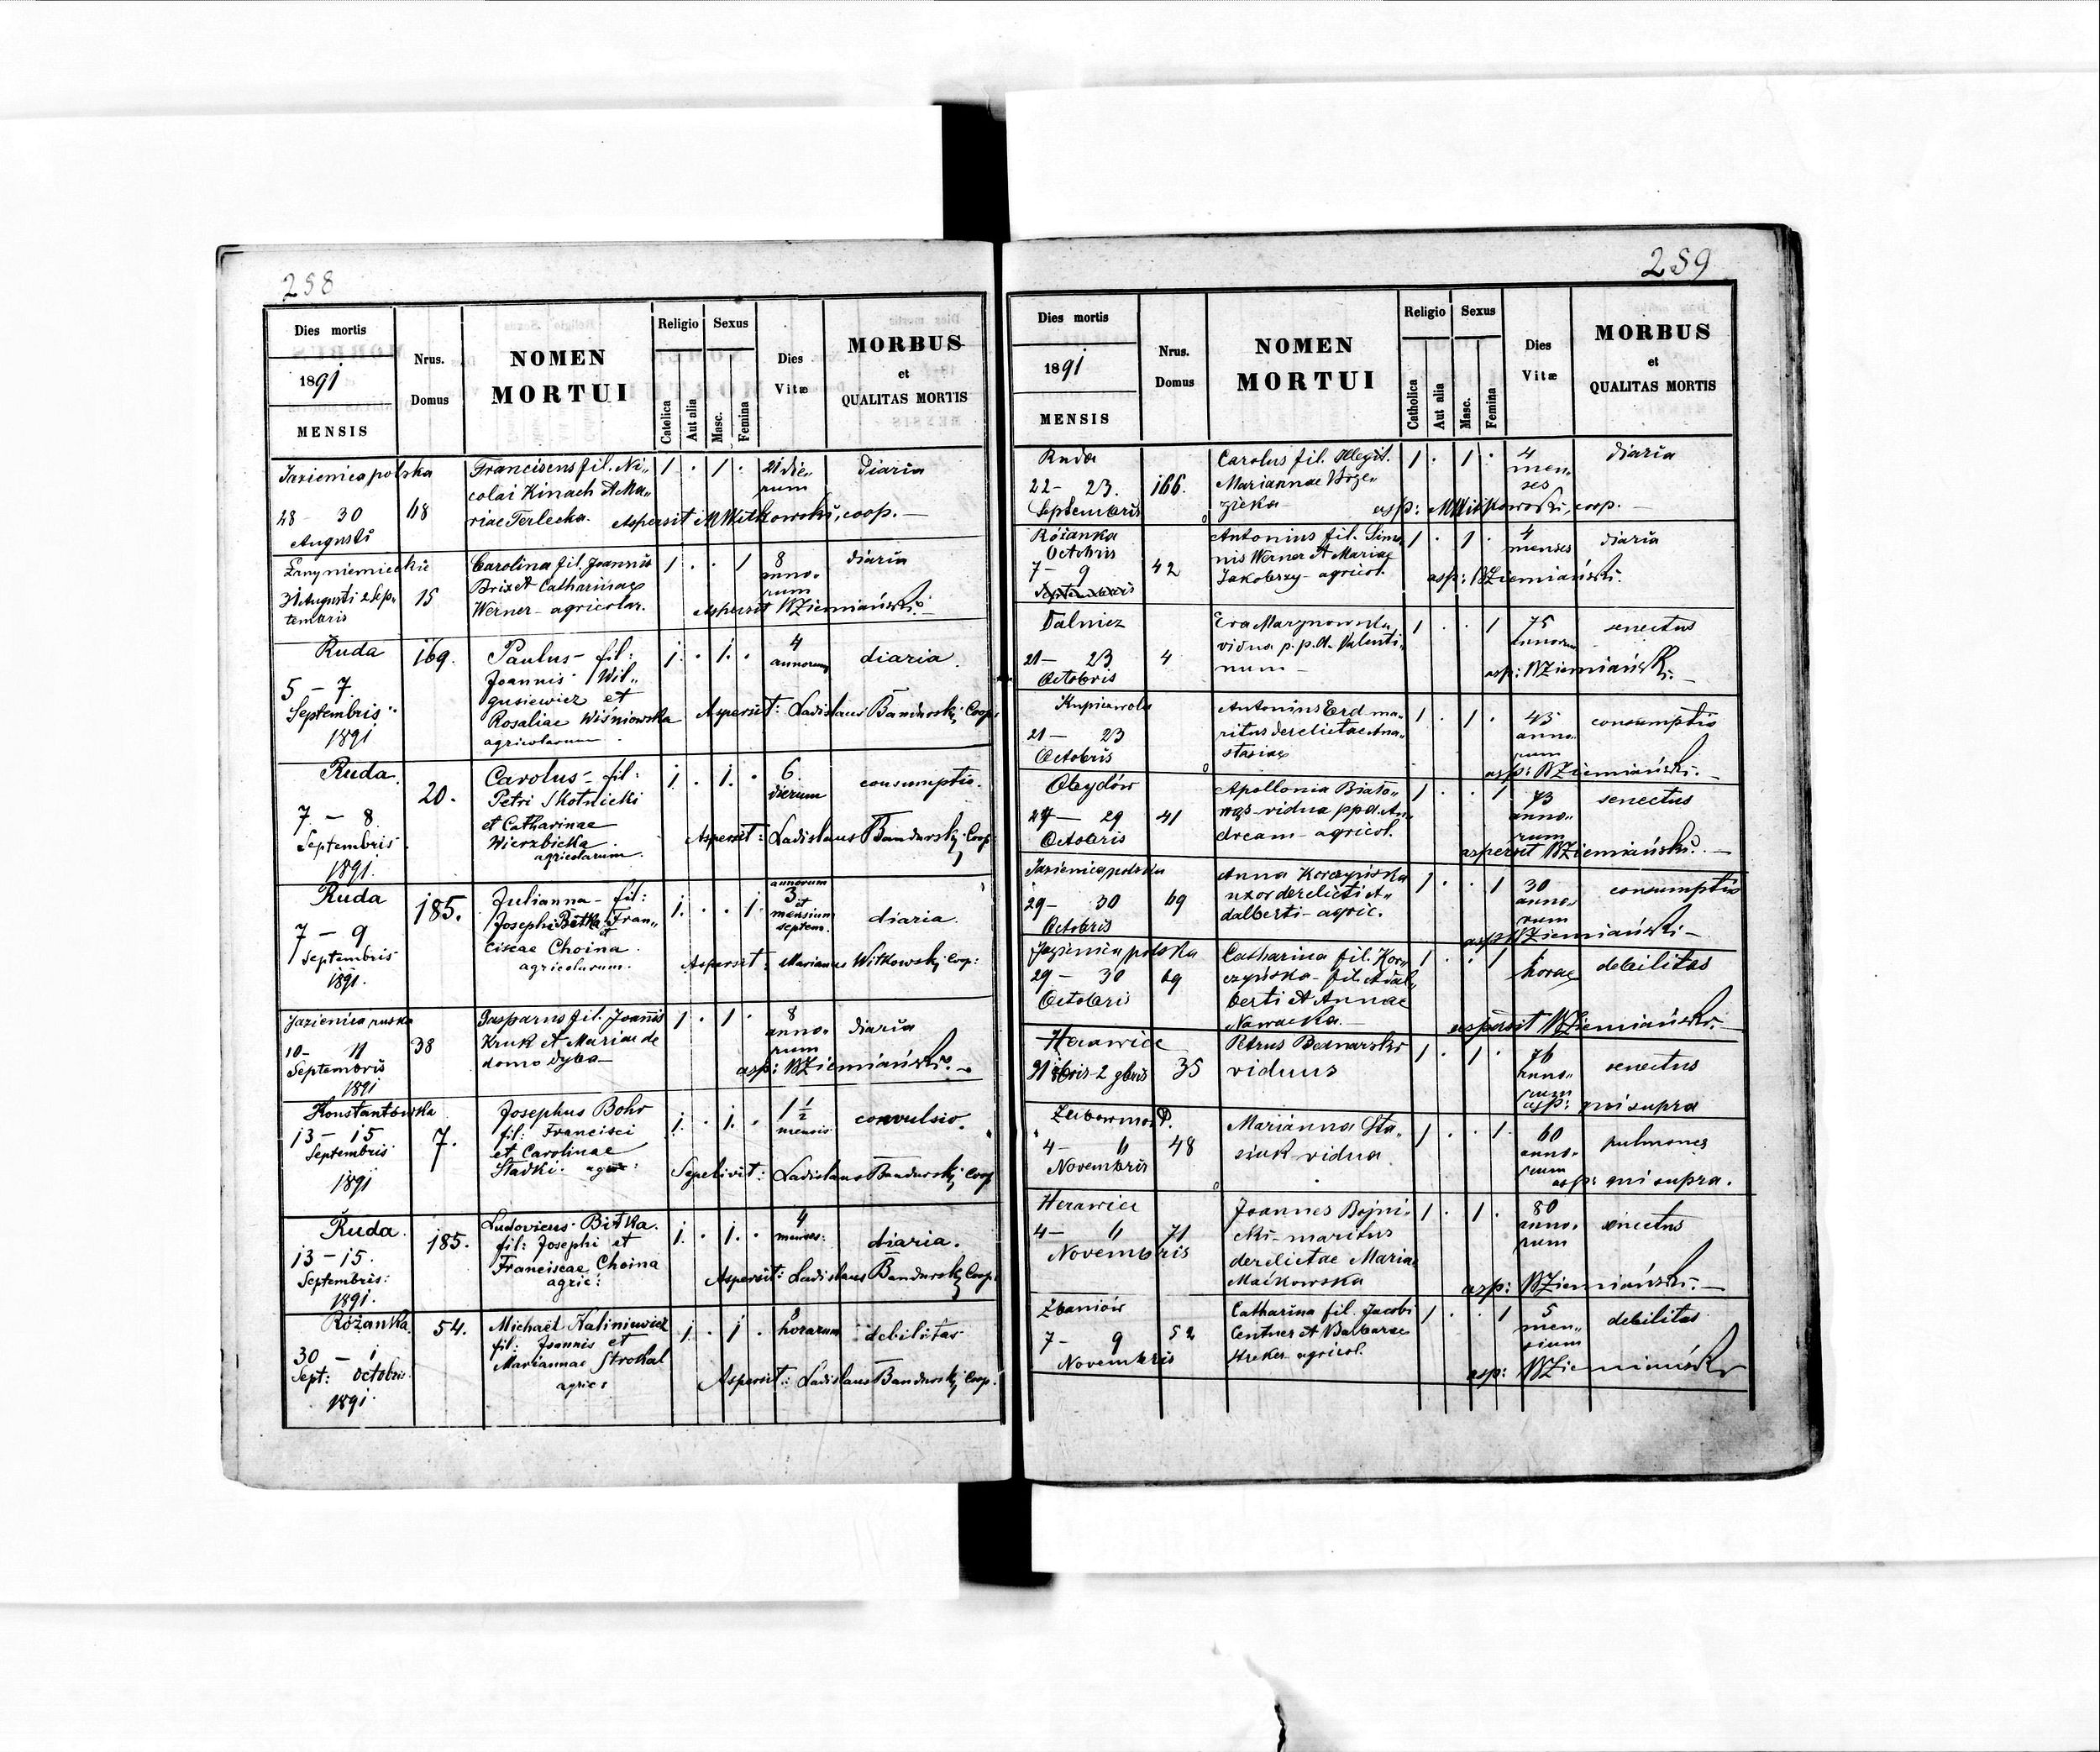 258
Dies mortis
1891
MENSIS
Nrus.
Domus
NOMEN
MORTUI
Religio
Sexus
Catolica
Aut alia
Masc.
Femina
Dies
Vitæ
MORBUS
et
QUALITAS MORTIS
Jazienica polska
28 - 30
Augusti
48
Franciscus fil. Ni„
colai Kinach et Ma„
riae Terlecka.
1 . 1 .
21 die„
rum
diaria
Aspersit M Witkowski, coop. —
Łany niemieckie
31 Augusti 2 Sep„
tembris
15
Carolina fil. Joannis
Brix et Catharinae
Werner - agricolar.
1 . . 1
8
anno„
rum
diaria
Aspersit WZiemiański. —
Ruda
5 - 7.
Septembris
1891
169.
Paulus - fil:
Joannis Wil„
gusiewicz et
Rosaliae Wiśniowska
agricolarum.
1. . 1. .
4
annorum
diaria.
Aspersit: Ladislaus Bandurski Coop.
Ruda.
7. - 8.
Septembris
1891.
20.
Carolus - fil:
Petri Skotnicki
et Catharinae
Wierzbicka.
agricolarum.
1 . 1. .
6.
dierum
consumptio.
Aspersit: Ladislaus Bandurski Coop.
Ruda
7 - 9
Septembris
1891.
185.
Julianna - fil:
Josephi Bitka et Fran„
ciscae Choina.
agricolarum.
1. . . 1.
annorum
3 et
mensium
septem.
diaria.
Aspersit: Marianus Witkowski Coop:
Jazienica ruska
10 - 11
Septembris
1891
38
Gasparus fil. Joannis
Kruk et Mariae de
domo Dyba —
1 . 1 .
8
anno„
rum
diaria
asp: WZiemiański. —
Konstantówka
13 - 15
Septembris
1891
7.
Josephus Bohr
fil: Francisci
et Carolinae
Stadki. agric:
1. . 1. .
1 1/2
mensis
convulsio.
Sepelivit: Ladislaus Bandurski Coop
Ruda.
13 - 15.
Septembris:
1891.
185.
Ludovicus Bitka.
fil: Josephi et
Franciscae Choina
agric:
1. . 1. .
4
menses:
diaria.
Aspersit: Ladislaus Bandurski Coop.
Różanka.
30 - 1
Sept: Octobris
1891.
54.
Michaël Kaliniewicz
fil: Joannis et
Mariannae Strokal
agric:
1. . 1 .
8
horarum
debilitas
Aspersit: Ladislaus Bandurski Coop.
259
Dies mortis
1891
MENSIS
Nrus.
Domus
NOMEN
MORTUI
Religio
Sexus
Catholica
Aut alia
Masc.
Femina
Dies
Vitæ
MORBUS
et
QUALITAS MORTIS
Ruda
22 - 23.
Septembris
166.
Carolus fil. Illegit.
Mariannae
zicka
1 . 1 .
4
men„
ses
diaria
asp: MWitkowski, coop. —
Różanka
Octobris
7 - 9
Septembris
42
Antonius fil. Simo
nis Werner et Mariae
Jakobszy - agricol.
1 . 1 .
4
menses
diaria
asp: WZiemiański.
Dalnicz
21 - 23
Octobris
4
Eva Marynowska,
vidua p. p. d. Valenti„
num —
1 . . 1
75
annorum
senectus
asp: WZiemiański. —
Kupiczwola
21 - 23
Octobris
Antonius Erd ma„
ritus derelictae Ana„
stasiae
1 . 1 .
43
anno„
rum
consumptio
asp: WZiemiański. —
Obydów
27 - 29
Octobris
41
Apollonia Biało„
wąs - vidua ppd. An„
dream - agricol.
1 . . 1
73
anno„
rum
senectus
aspersit WZiemiański. —
Jazienica polska
29 - 30
Octobris
69
Anna Korczyńska
uxor derelicti A„
dalberti - agric.
1 . . 1
30
anno„
rum
consumptio
asp: WZiemiański —
Jazienica polska
29 - 30
Octobris
69
Catharina fil. Kor„
czyńska - fil. Adal„
berti et Annae
Nawacka. —
1 . . 1
1
horae
debilitas
aspersit WZiemiański. —
Herawice
31 8bris - 2 9bris
35
Petrus Bednarski
viduus
1 . 1 .
76
anno„
rum
senectus
asp: qui supra
4 - "
Novembris
48
Marianna Sta„
siuk vidua
1 . . 1
60
anno„
rum
pulmones
asp: qui supra.
Herawice
4 - "
Novembris
71
Joannes Bojni„
cki - maritus
derelictae Mariae
Maćkowska
1 . 1 .
80
anno„
rum
senectus
asp: WZiemiański. —
Zbaniów
7 - 9
Novembris
52
Catharina fil. Jacobi
Centner et Barbarae
Streker agricol.
1 . . 1
5
men„
sium
debilitas
asp: WZiemiański